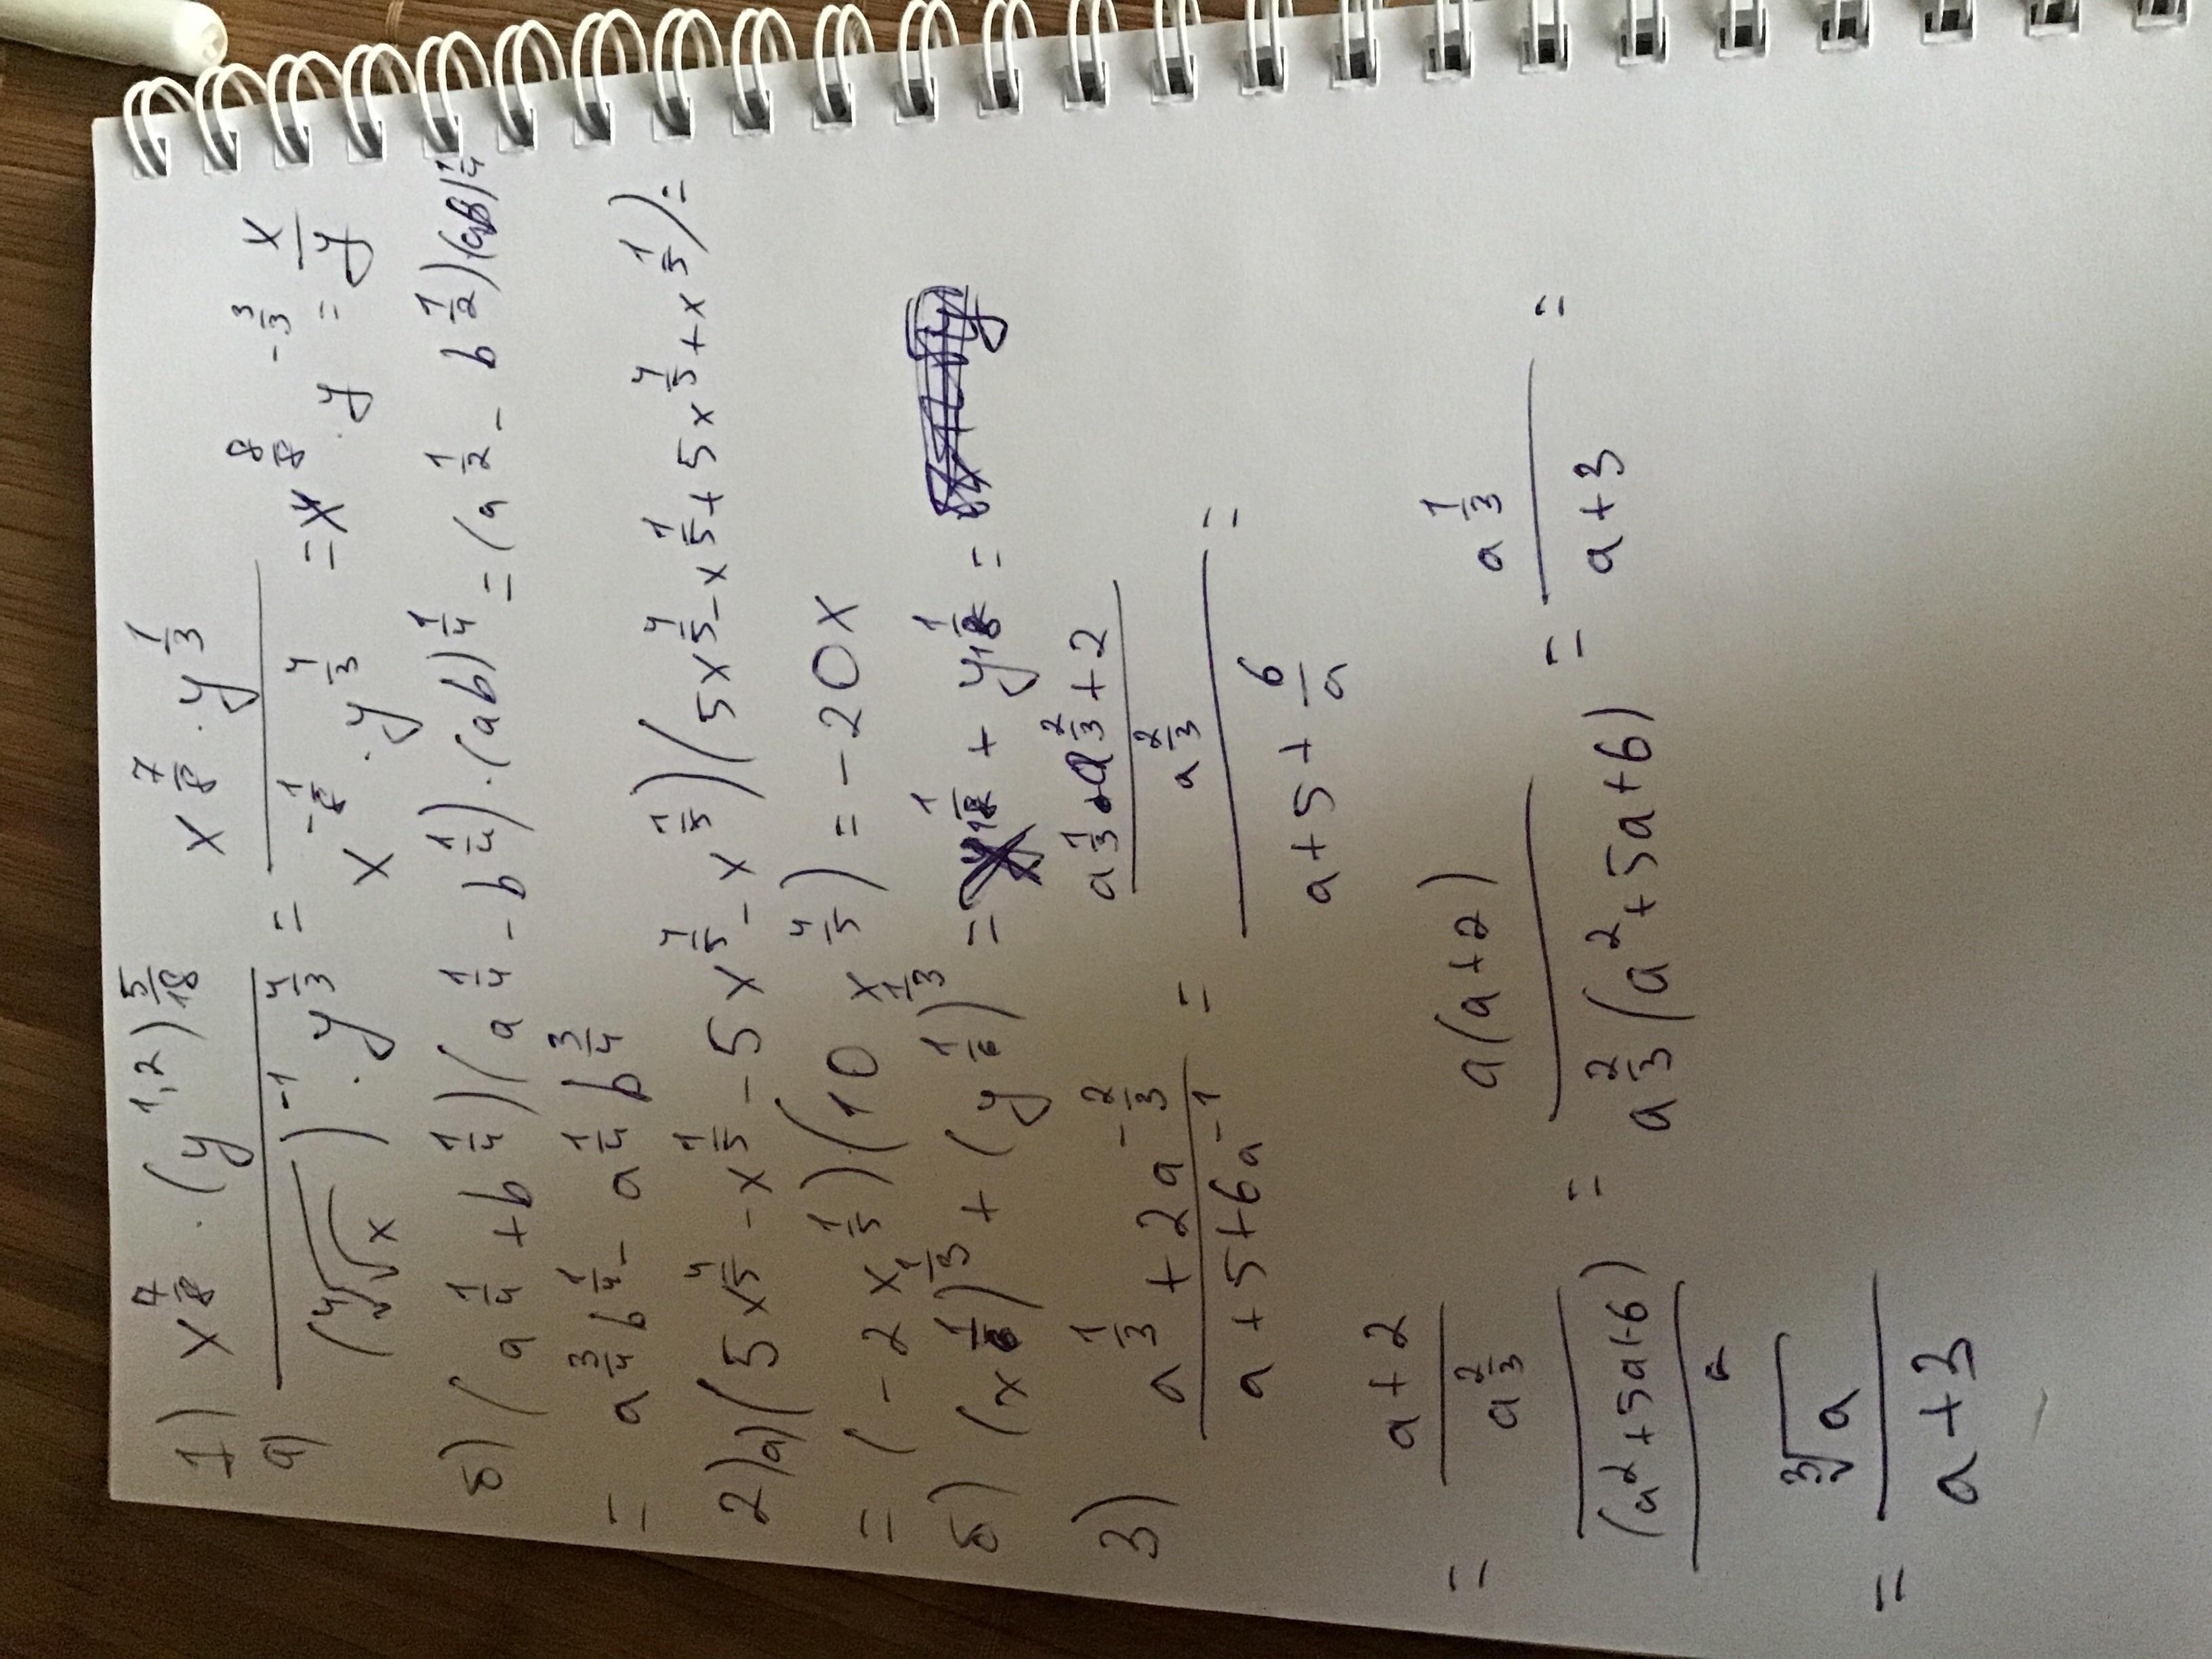 1) а) (x^(7/8) · (y^(1,2))^(5/18)) / ((⁴√√x)^(-1) · y^(4/3)) = (x^(7/8) · y^(1/3)) / (x^(-1/8) · y^(4/3)) = x^(8/8) · y^(-3/3) = x/y
б) (a^(1/4) + b^(1/4))(a^(1/4) - b^(1/4)) · (ab)^(1/4) = (a^(1/2) - b^(1/2))(ab)^(1/4)
= a^(3/4) b^(1/4) - a^(1/4) b^(3/4)
2) а) (5x^(4/5) - x^(1/5) - 5x^(4/5) - x^(1/5))(5x^(4/5) - x^(1/5) + 5x^(4/5) + x^(1/5) =
= (-2x^(1/5))(10x^(4/5)) = -20x
б) (x^(1/6))^(1/3) + (y^(1/6))^(1/3) = x^(1/18) + y^(1/18) =
3) (a^(1/3) + 2a^(-2/3)) / (a + 5 + 6a^(-1)) = ((a^(1/3) · a^(2/3) + 2) / a^(2/3)) / (a + 5 + 6/a) =
= ((a + 2) / a^(2/3)) / ((a² + 5a + 6) / a) = a(a + 2) / (a^(2/3)(a² + 5a + 6)) = a^(1/3) / (a + 3) =
= ³√a / (a + 3)